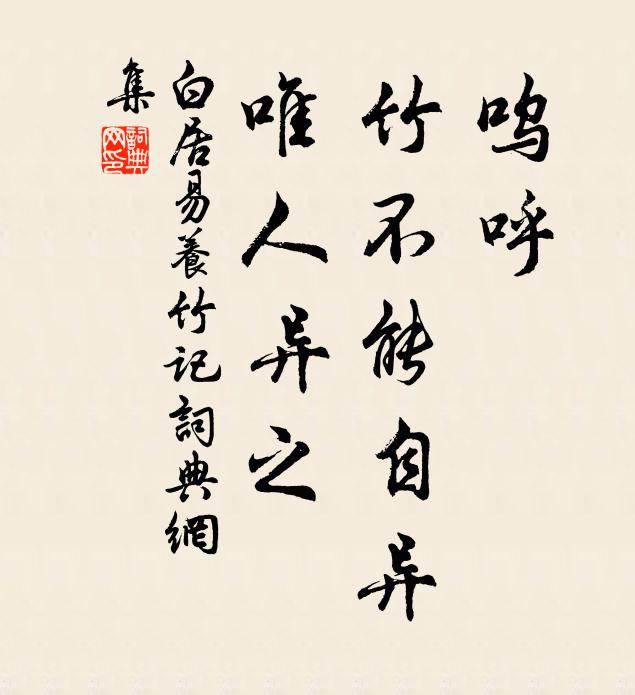 呜呼
竹不能自异
唯人异之
白居易養竹记詞典網
集
詞典網印